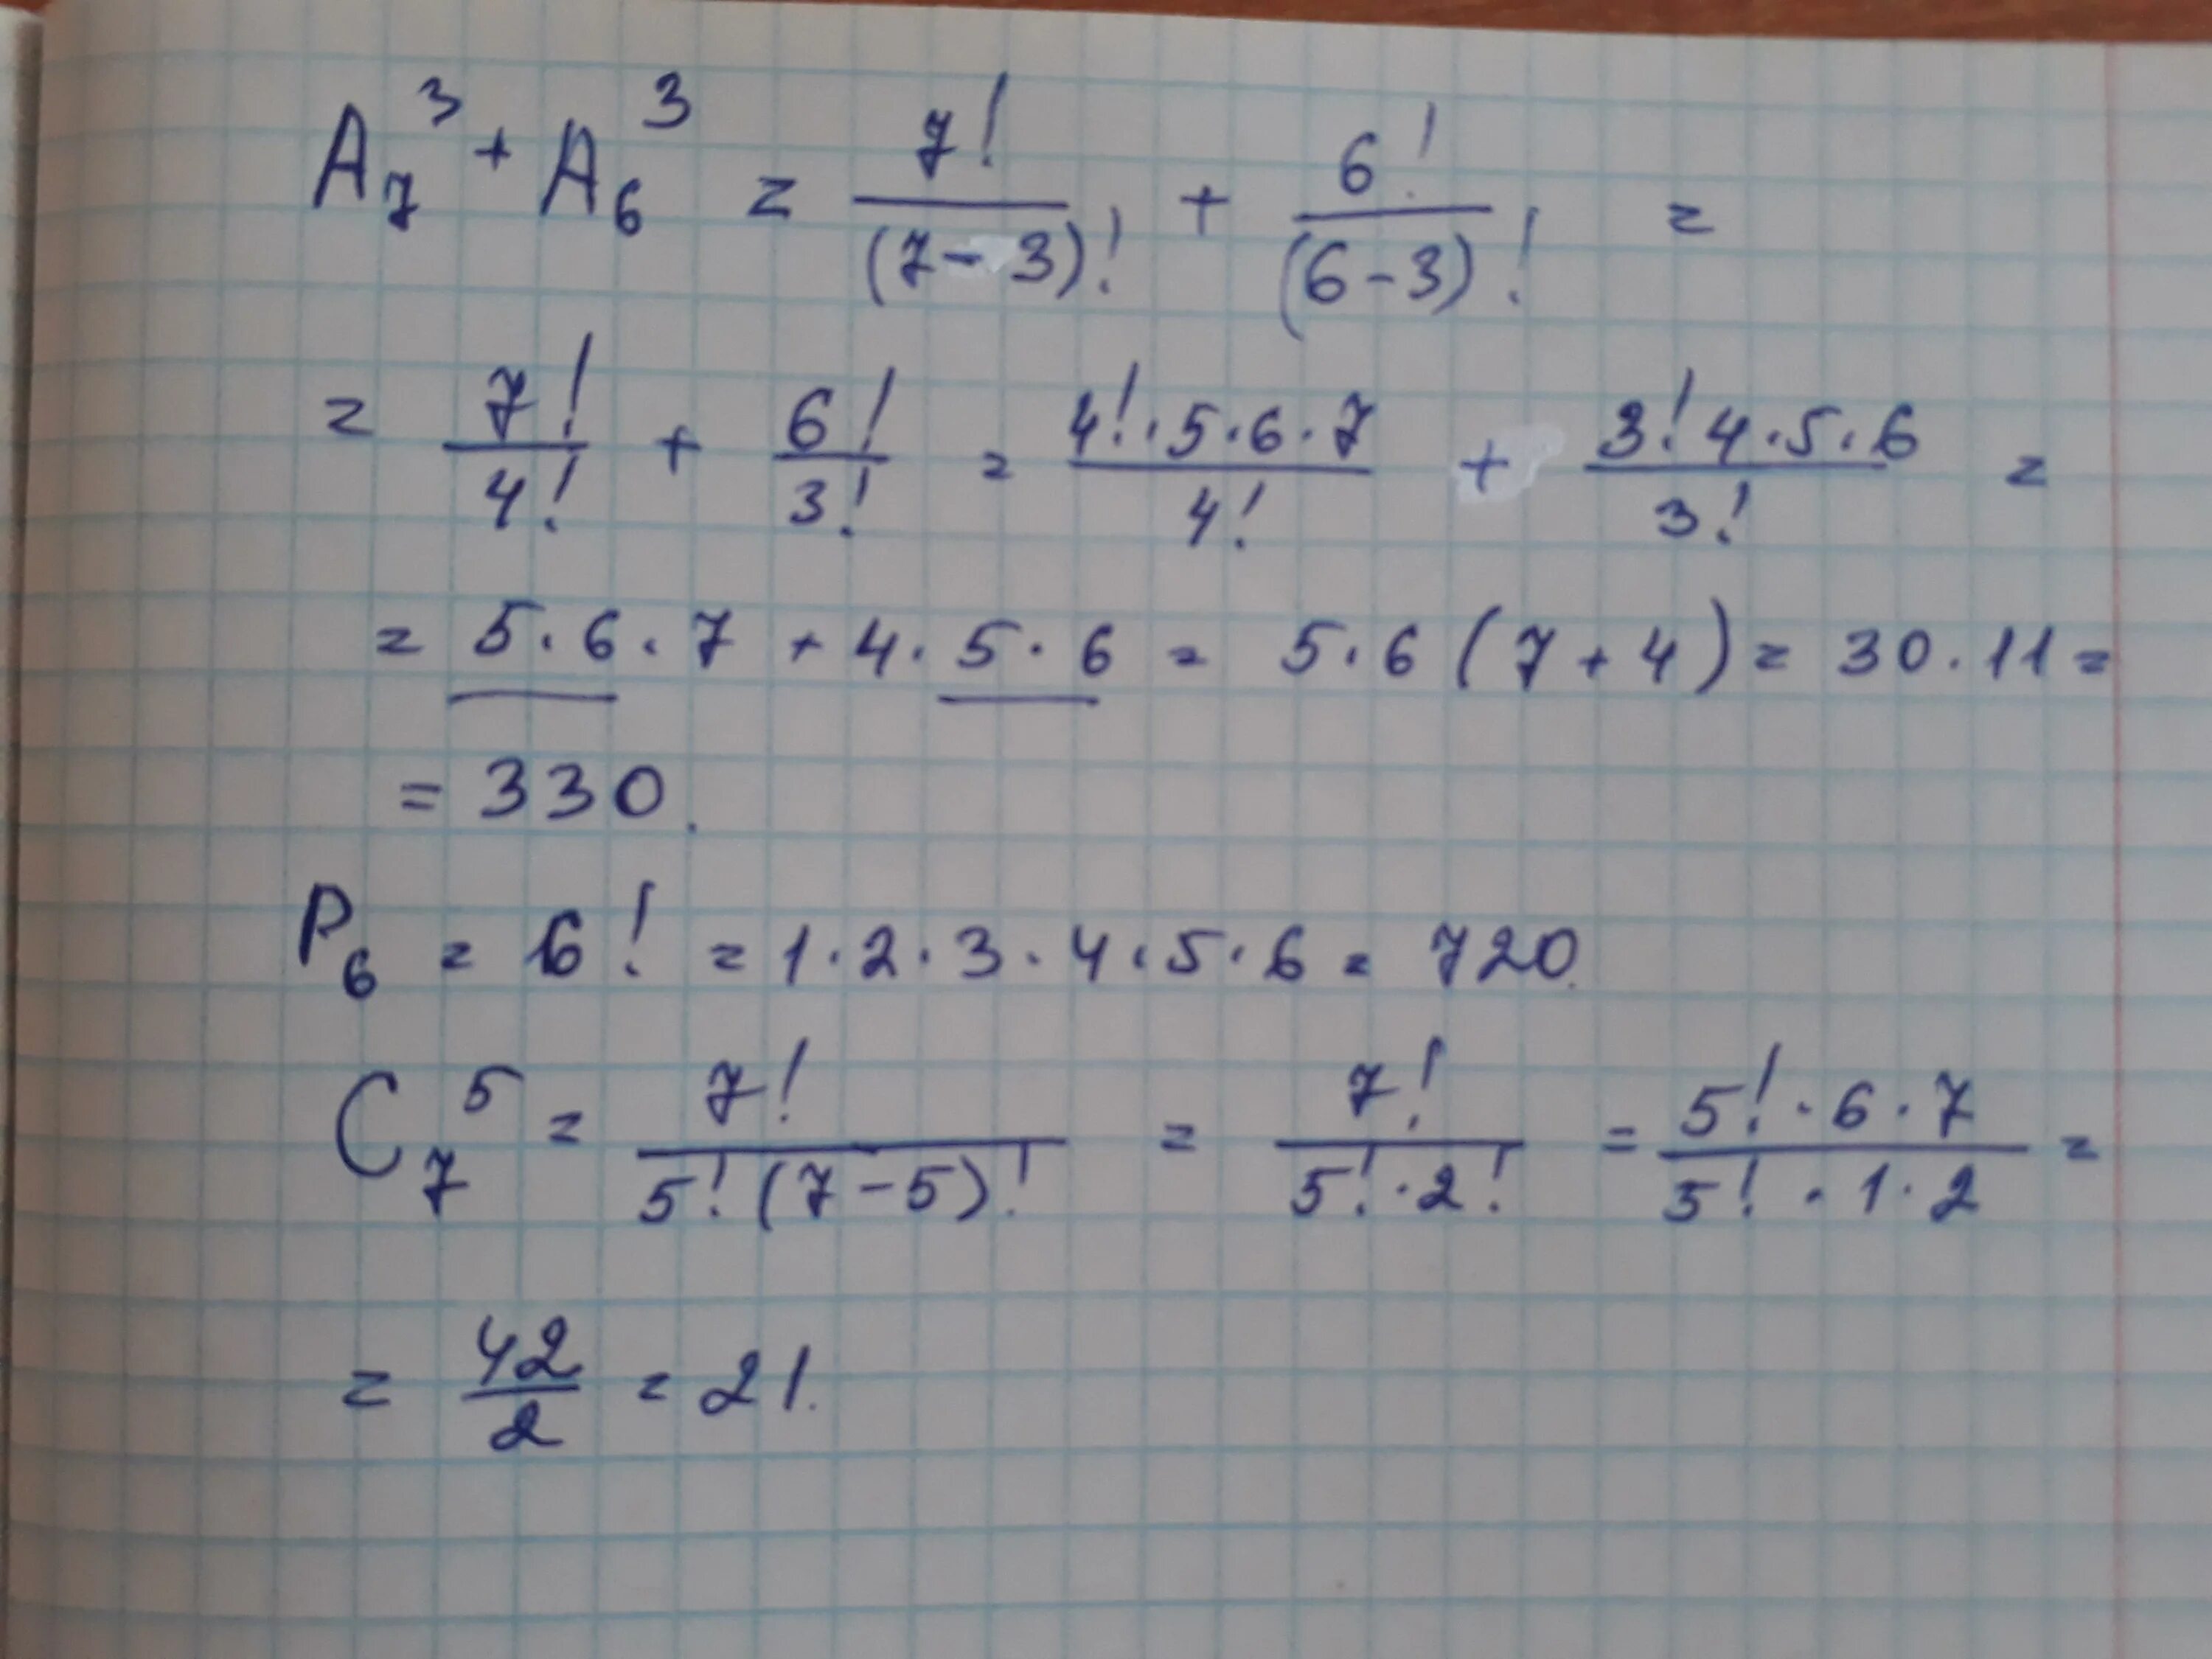 A₇³ + A₆³ = 7!/(7-3)! + 6!/(6-3)! =
= 7!/4! + 6!/3! = 4!·5·6·7/4! + 3!4·5·6/3! =
= 5·6·7 + 4·5·6 = 5·6(7+4) = 30·11 =
= 330.
P₆ = 6! = 1·2·3·4·5·6 = 720.
C₇⁵ = 7!/5!(7-5)! = 7!/5!·2! = 5!·6·7/5!·1·2 =
= 42/2 = 21.